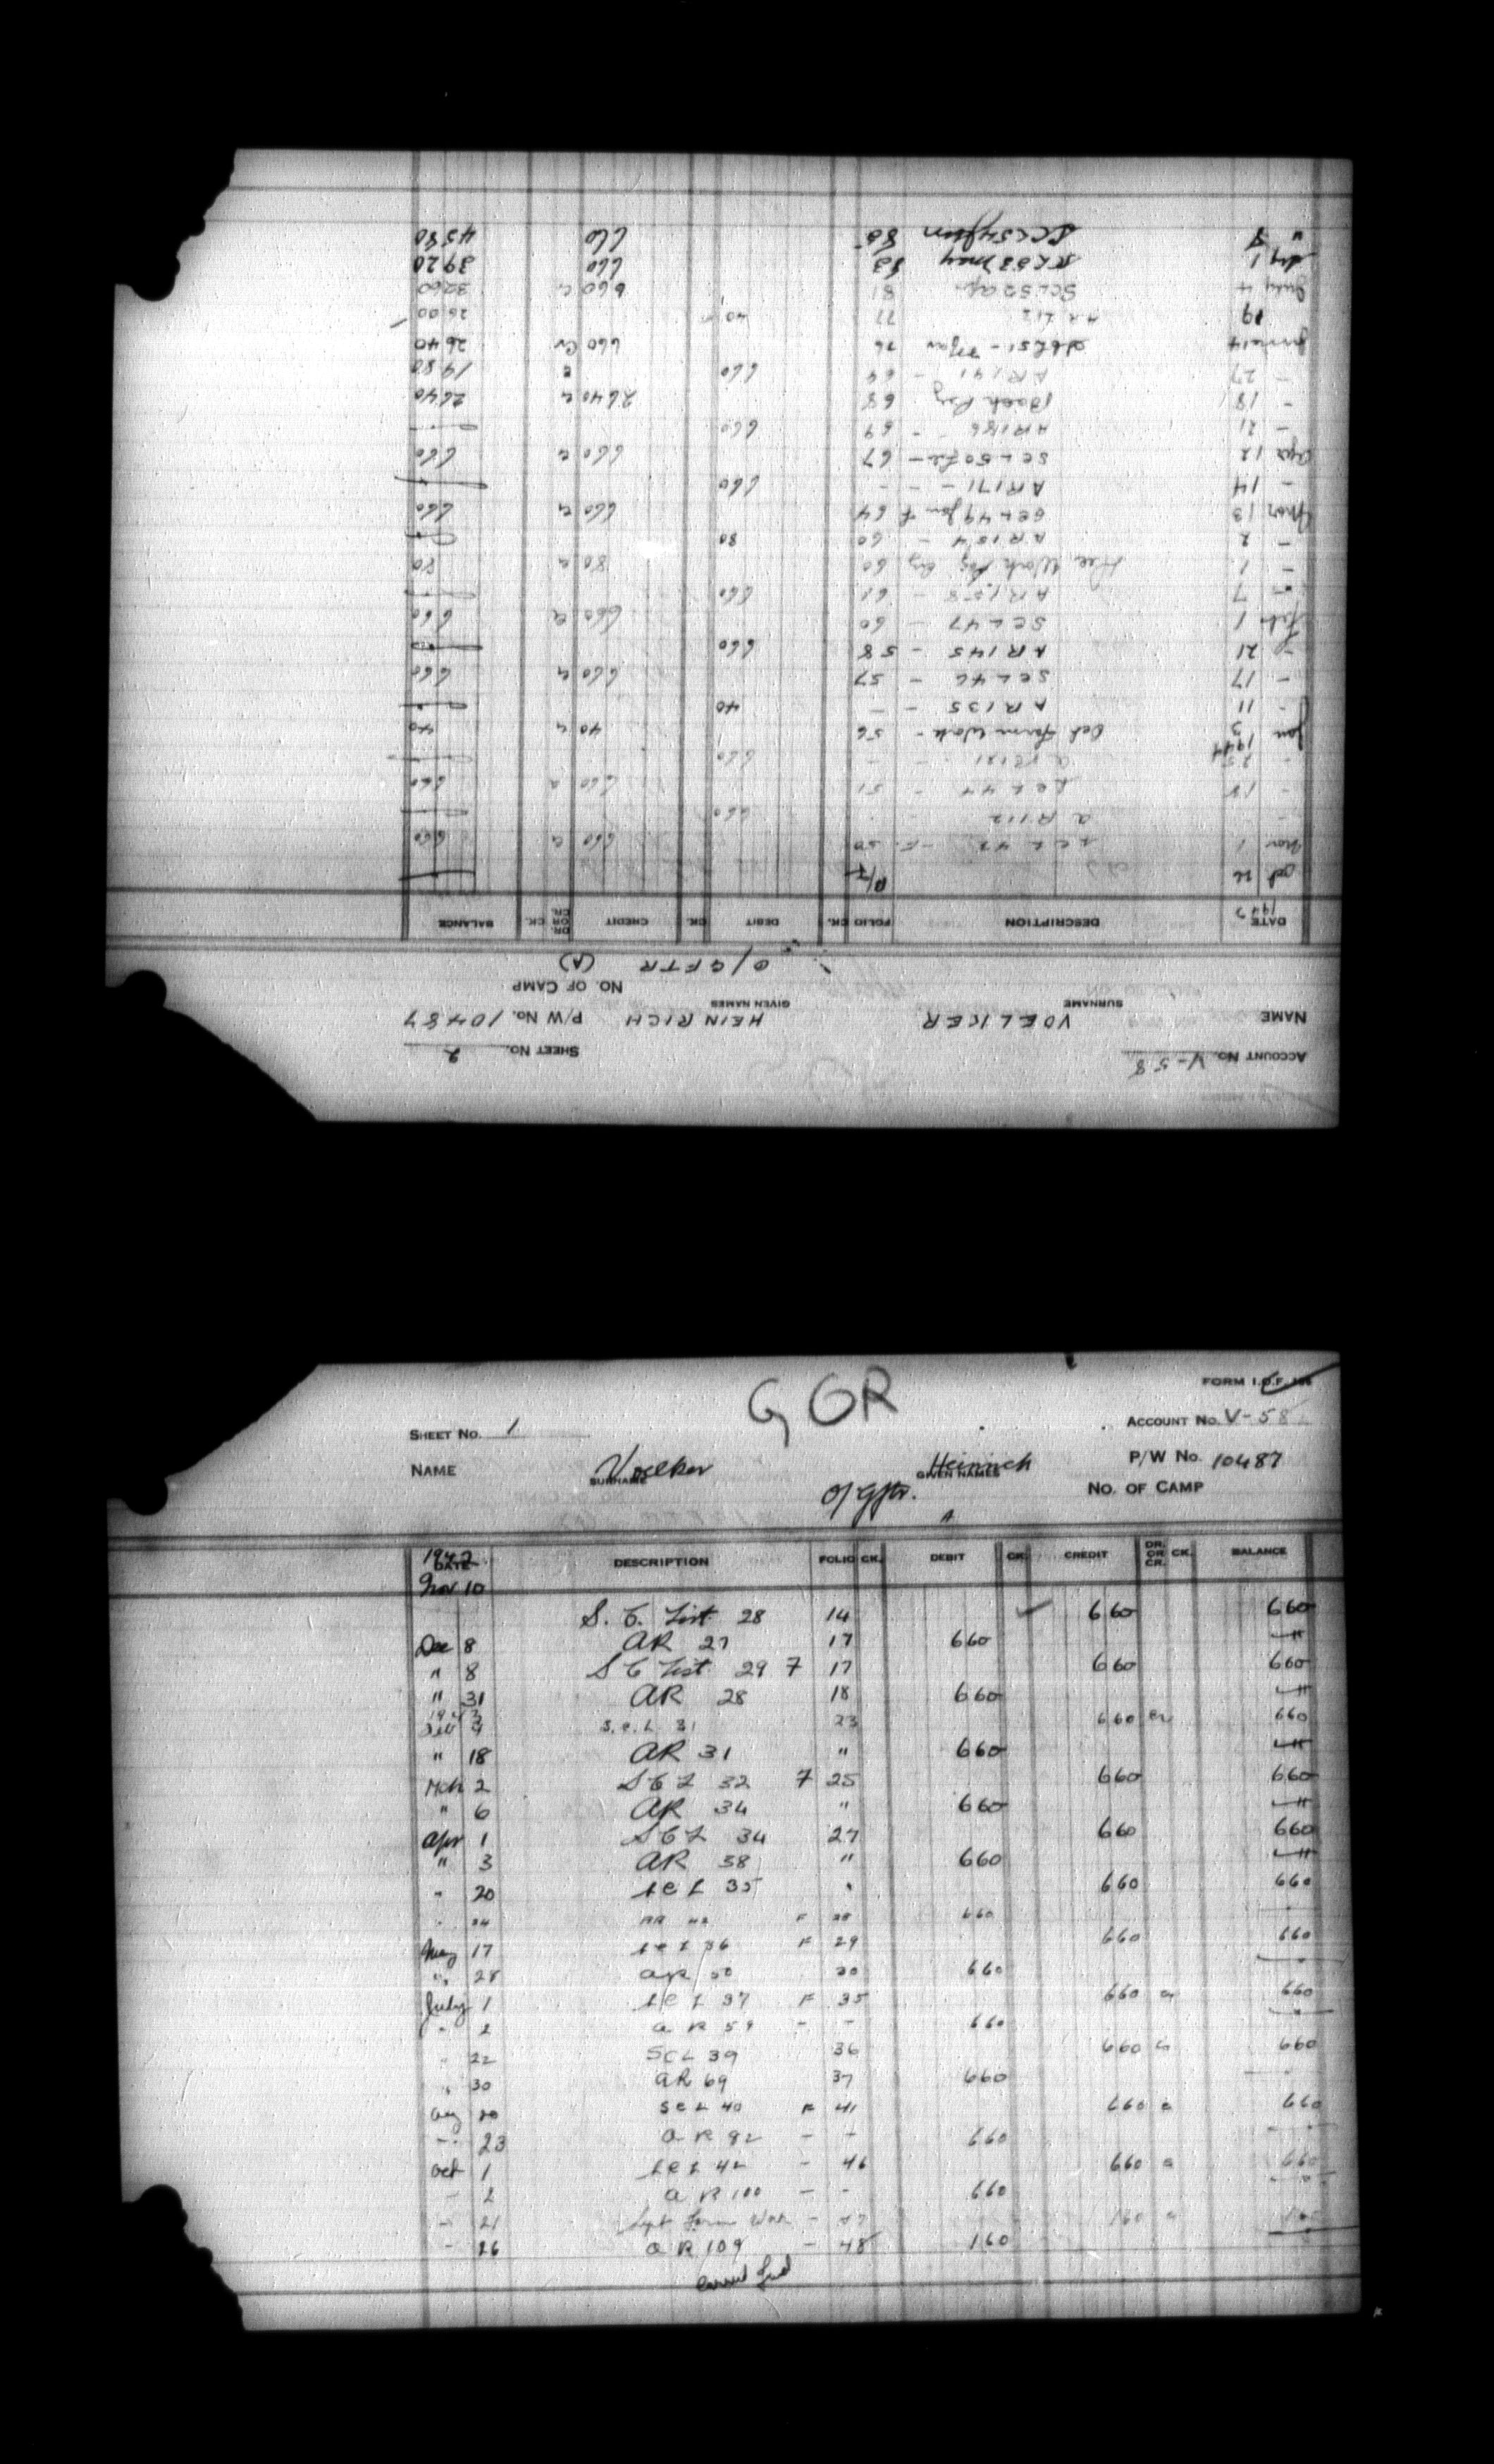 G GR
FORM I.O.F.
SHEET No. 1 ACCOUNT No. V-58
NAME Voelker Heinrich P/W No. 10487
SURNAME GIVEN NAMES
O/Gftr. A NO. OF CAMP
1942
DATE DESCRIPTION FOLIO CK. DEBIT CK. CREDIT DR. OR CR. CK. BALANCE
Nov 10
S.C. List 28 14 660 660
Dec 8 AR 27 17 660 "
" 8 S C List 29 7 17 660 660
" 31 AR 28 18 660 "
1943
Feb 4 S.C.L 31 23 660 cr 660
" 18 AR 31 " 660 "
Mch 2 SCL 32 7 25 660 660
" 6 AR 34 " 660 "
Apr 1 SCL 34 27 660 660
" 3 AR 38 " 660 "
" 20 SCL 35 " 660 660
" 24 AR 42 F 28 660
May 17 SCL 36 F 29 660 660
" 28 AR 50 30 660
July 1 SCL 37 F 35 660 cr 660
" 2 AR 59 - - 660
" 22 SCL 39 36 660 cr 660
" 30 AR 69 37 660
Aug 20 SCL 40 F 41 660 cr 660
- 23 AR 82 - - 660
Oct 1 SCL 42 - 46 660 cr 660
- 2 AR 100 - - 660
- 21 Sept Farm Work - 47 160 cr 160
- 26 AR 109 - 48 160
ACCOUNT No. V-58 SHEET No. 2
NAME VOELKER HEINRICH P/W No. 10487
SURNAME GIVEN NAMES NO. OF CAMP
O/GFTR (A)
1943
DATE DESCRIPTION FOLIO CK. DEBIT CK. CREDIT DR. OR CR. CK. BALANCE
Oct 26 P/F
Nov 1 SCL 43 - F. 50 660 cr 660
- - AR 112 - - 660
- 18 SCL 44 - 51 660 cr 660
- 25 AR 121 - - 660
1944
Jan 3 Oct Farm Work - 56 40 cr 40
- 11 AR 135 - - 40
- 17 SCL 46 - 57 660 cr 660
- 21 AR 145 - 58 660
Feb 1 SCL 47 - 60 660 cr 660
- 7 AR 158 - 61 660
- 1 Dec Work Pay 60 80 cr 80
- 2 AR 154 - 60 80
Mar 13 SCL 49 Jan F 64 660 cr 660
- 14 AR 171 - - - 660
Apr 12 SCL 50 Feb - 67 660 cr 660
- 21 AR 186 - 69 660
- 18 Back Pay 68 2640 cr 2640
- 27 AR 191 - 69 660 cr 1980
June 14 SCL 51 - Mar 76 660 Cr 2640
19 AR 212 77 40 2600
July 4 SCL 52 Apr 81 660 cr 3260
1 SCL 53 May 83 660 3920
" 8 SCL 54 Jun 85 660 4580